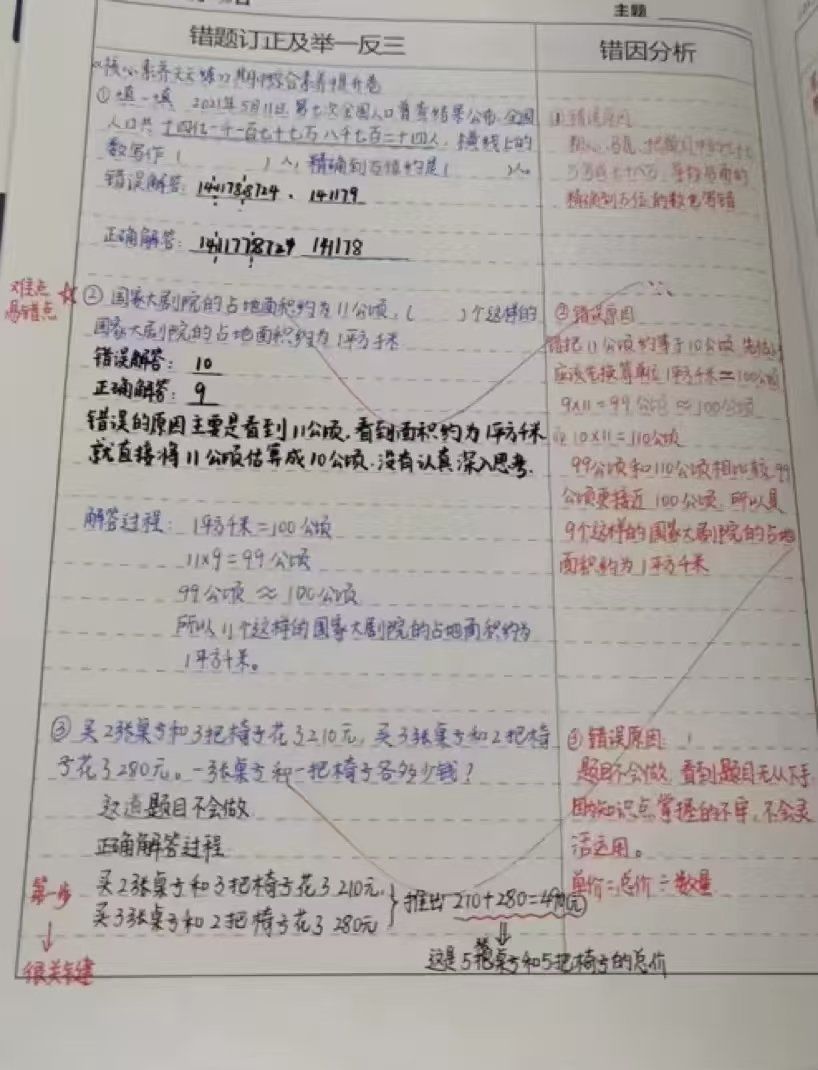 主题
错题订正及举一反三
错因分析
核心素养天天练期中综合素养提升卷
①填一填 2021年5月11日第七次全国人口普查结果公布,全国
人口共十四亿一千一百七十七万八千七百二十四人,横线上的
数写作( )人,精确到万位约是( )人
错误解答:141178724、141179
正确解答:1411778724 141178
①错误原因
粗心、马虎,把题目中的七十七
万写成七十八万,导致后面的
精确到万位的数也写错
难点
易错点
②国家大剧院的占地面积约为11公顷,( )个这样的
国家大剧院的占地面积约为1平方千米
错误解答:10
正确解答:9
错误的原因主要是看到11公顷,看到面积约为1平方千米
就直接将11公顷估算成10公顷.没有认真深入思考.
解答过程:1平方千米=100公顷
11×9=99公顷
99公顷≈100公顷
所以11个这样的国家大剧院的占地面积约为
1平方千米。
②错误原因
错把11公顷约等于10公顷
应该先换算单位1平方千米=100公顷
9×11=99公顷≈100公顷
10×11=110公顷
99公顷和110公顷相比较99
公顷更接近100公顷,所以是
9个这样的国家大剧院的占地
面积约为1平方千米
③买2张桌子和3把椅子花了210元,买3张桌子和2把椅
子花了280元。一张桌子和一把椅子各多少钱?
这道题目不会做
正确解答过程
第一步
很关键
买2张桌子和3把椅子花了210元,
买3张桌子和2把椅子花了280元
推出210+280=490(元)
这是5张桌子和5把椅子的总价
③错误原因
题目不会做,看到题目无从下手
因为知识点掌握的不牢,不会灵
活运用。
单价=总价÷数量